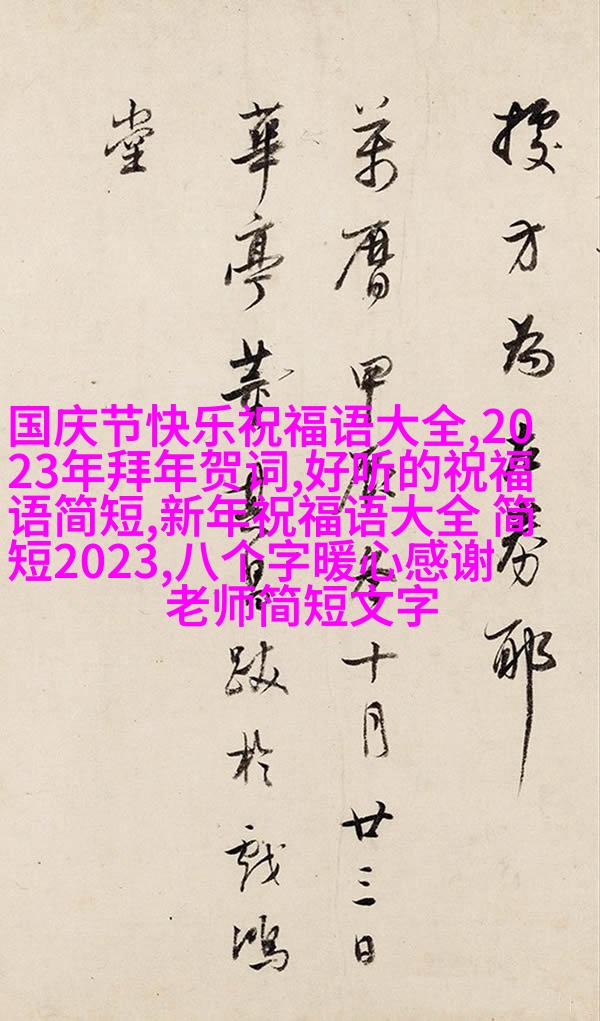 方為耶
萬曆甲辰冬十月廿三日
華亭董其昌跋於戲鴻
堂
国庆节快乐祝福语大全,20
23年拜年贺词,好听的祝福
语简短,新年祝福语大全 简
短2023,八个字暖心感谢
老师简短文字